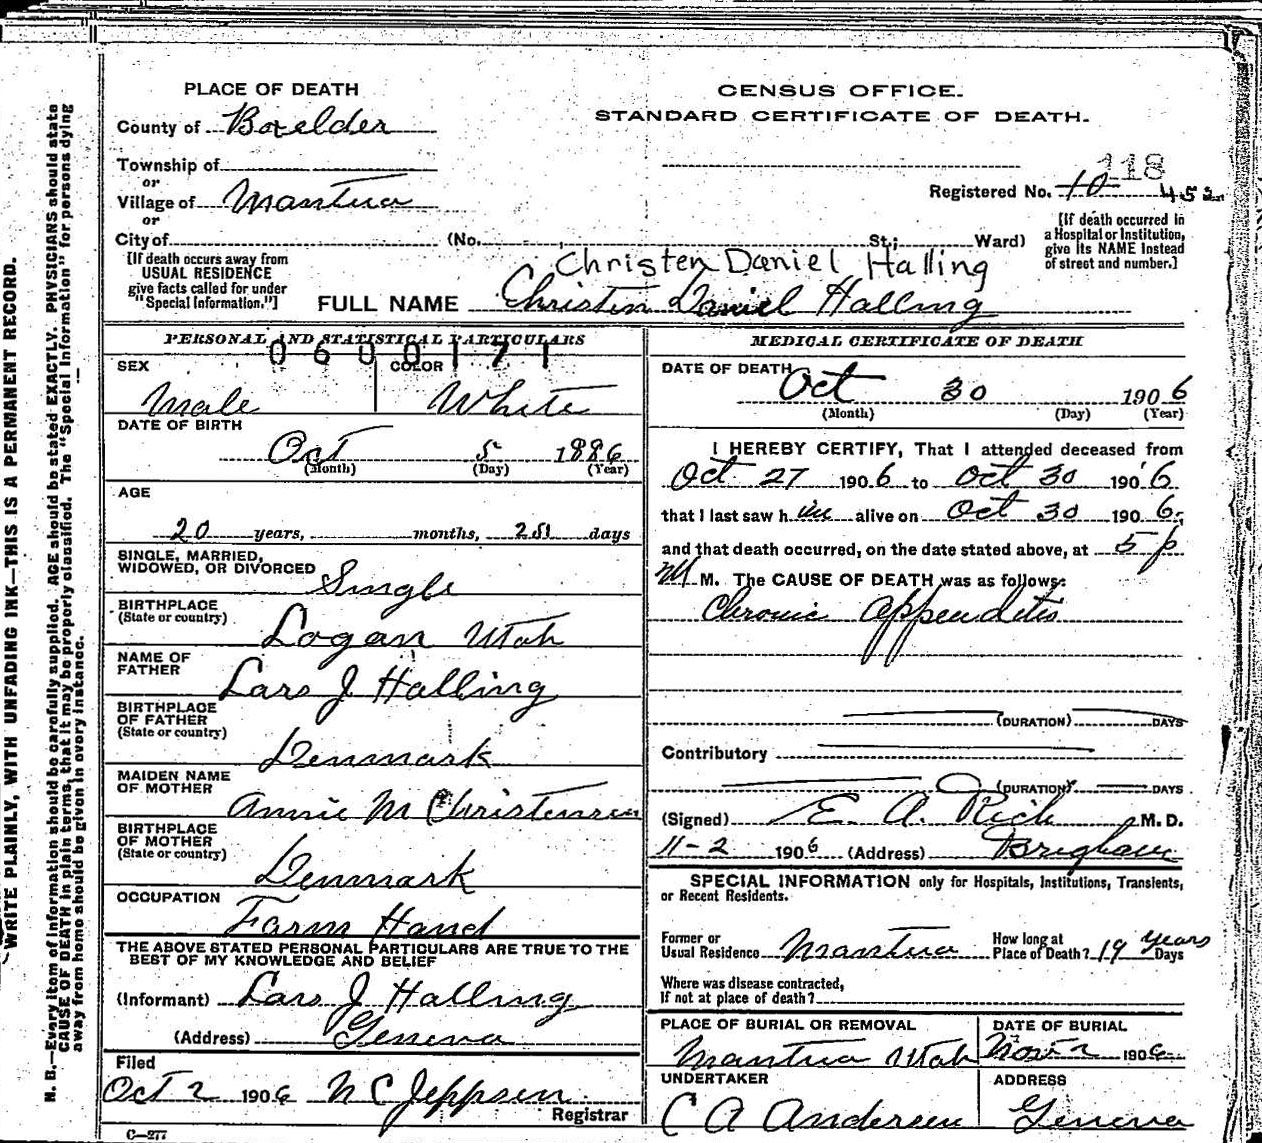 PLACE OF DEATH
County of Boxelder
Township of
or
Village of Mantua
or
City of (No. , St.; Ward)
[If death occurs away from
USUAL RESIDENCE
give facts called for under
"Special Information."]
CENSUS OFFICE.
STANDARD CERTIFICATE OF DEATH.
118
Registered No. 10 452
[If death occurred in
a Hospital or Institution,
give its NAME instead
of street and number.]
Christen Daniel Halling
FULL NAME Christen Daniel Halling
PERSONAL AND STATISTICAL PARTICULARS
0600171
SEX COLOR
Male White
DATE OF BIRTH
Oct 5 1886
(Month) (Day) (Year)
AGE
20 years, months, 25 days
SINGLE, MARRIED,
WIDOWED, OR DIVORCED
Single
BIRTHPLACE
(State or country)
Logan Utah
NAME OF
FATHER
Lars J Halling
BIRTHPLACE
OF FATHER
(State or country)
Denmark
MAIDEN NAME
OF MOTHER
Annie M Christensen
BIRTHPLACE
OF MOTHER
(State or country)
Denmark
OCCUPATION
Farm Hand
THE ABOVE STATED PERSONAL PARTICULARS ARE TRUE TO THE
BEST OF MY KNOWLEDGE AND BELIEF
(Informant) Lars J Halling
(Address) Geneva
Filed
Oct 2 1906 N C Jeppsen
Registrar
C—277
MEDICAL CERTIFICATE OF DEATH
DATE OF DEATH
Oct 30 1906
(Month) (Day) (Year)
I HEREBY CERTIFY, That I attended deceased from
Oct 27 1906 to Oct 30 1906
that I last saw him alive on Oct 30 1906,
and that death occurred, on the date stated above, at 5 p
M M. The CAUSE OF DEATH was as follows:
Chronic appenditis
(DURATION) DAYS
Contributory
(DURATION) DAYS
(Signed) E. A. Rich M. D.
11-2 1906 (Address) Brigham
SPECIAL INFORMATION only for Hospitals, Institutions, Transients,
or Recent Residents.
Former or
Usual Residence Mantua
How long at
Place of Death? 19 years Days
Where was disease contracted,
If not at place of death?
PLACE OF BURIAL OR REMOVAL DATE OF BURIAL
Mantua Utah Nov 2 1906
UNDERTAKER ADDRESS
C A Andersen Geneva
WRITE PLAINLY, WITH UNFADING INK—THIS IS A PERMANENT RECORD.
N. B.—Every item of information should be carefully supplied. AGE should be stated EXACTLY. PHYSICIANS should state
CAUSE OF DEATH in plain terms, that it may be properly classified. The "Special Information" for persons dying
away from home should be given in every instance.